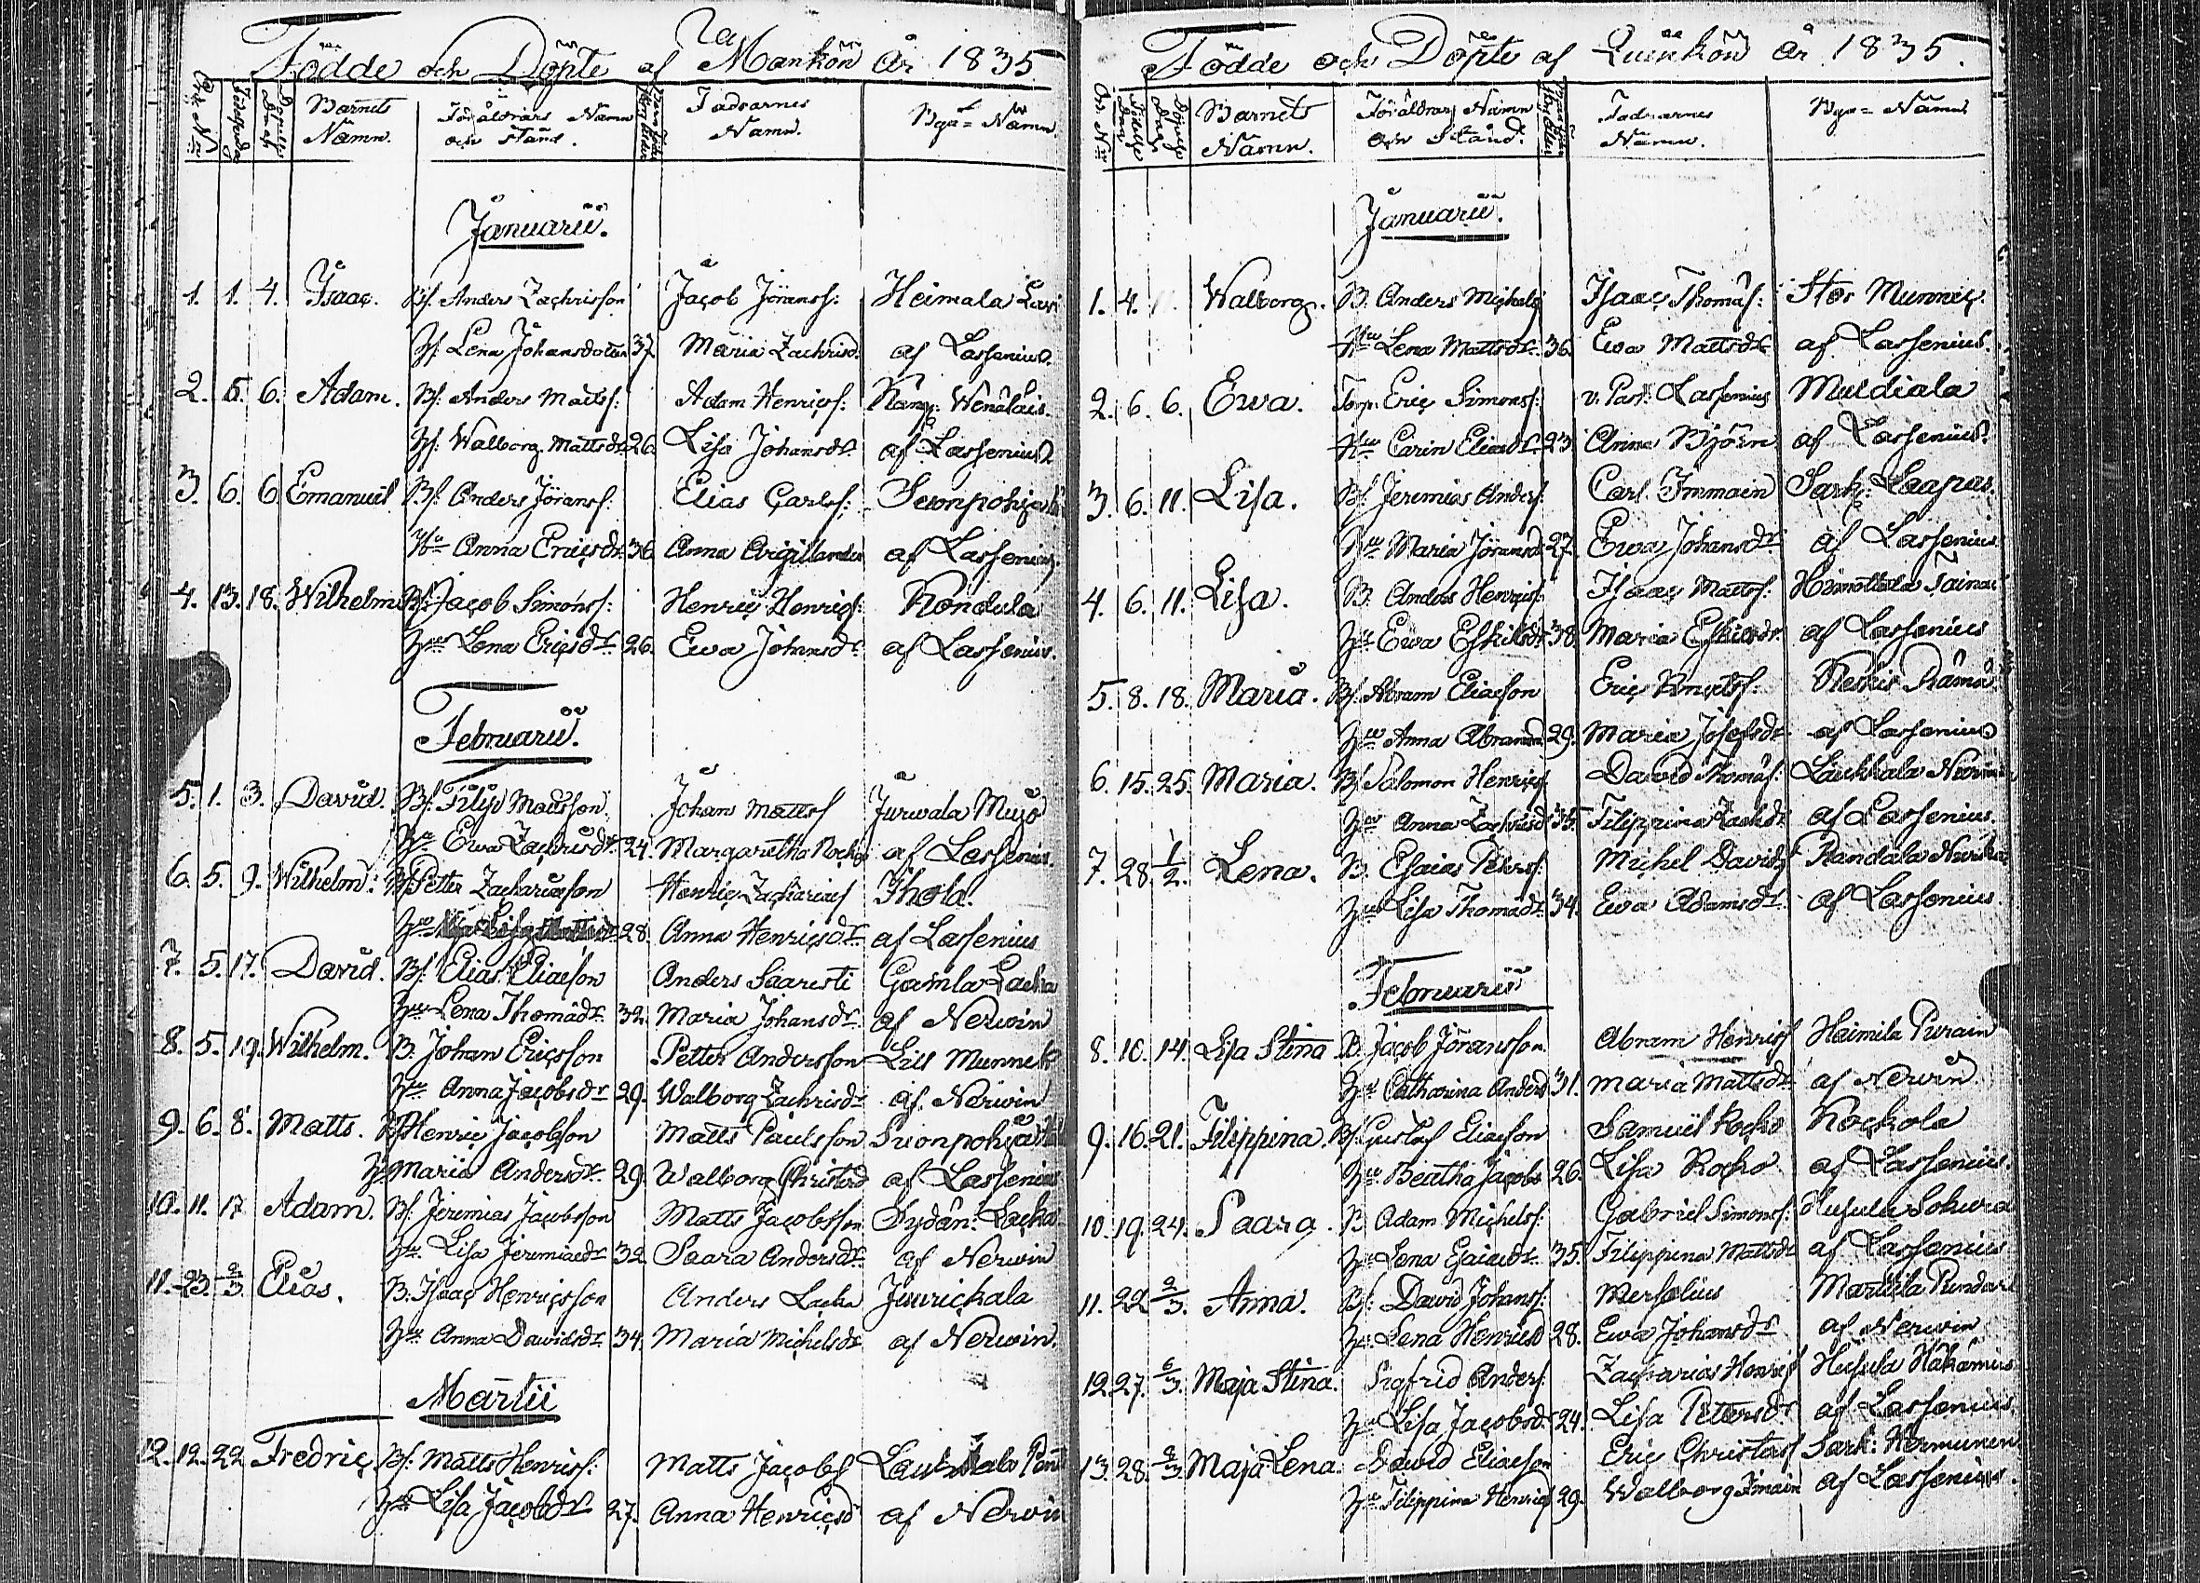 Födde och Döpte af Mankön År 1835
Barnets Namn. Föräldrars Namn och Stånd. Faddrarnes Namn. Bya= Namn
Januarii.
1. 1. 4. Isaac. Bs. Anders Zachrisson Jacob Jöranss: Heimala Lari
Hu Lena Johansdotter 37. Maria Zachrisd. af Lassenius.
2. 5. 6. Adam. Bs. Anders Mattss: Adam Henricss:
Hu Walborg Mattsdr 26. Lisa Johansdr af Lassenius.
3. 6. 6. Emanuel Bs. Anders Jöranss: Elias Carlss:
Hu Anna Ericsdr 36. Anna Argillander af Lassenius.
4. 13. 18. Wilhelm Bs. Jacob Simonss: Henric Henricss: Kondula
Hu Lena Ericsdr 26. Ewa Johansdr af Lassenius.
Februarii.
5. 1. 3. David. Bs. Filip Madsson Johan Mattss Jurwala
Hu Ewa Zachrisdr 24. Margaretha af Lassenius.
6. 5. 9. Wilhelm: Bs Petter Zachariasson Henric Zachariass Ihola.
Hu 28. Anna Henricsdr af Lassenius
7. 5. 17. David. Bs. Elias Eliasson Anders Saaresti Gamla Lacka
Hu Lena Thomädr 32. Maria Johansdr af Nerwin
8. 5. 19. Wilhelm. B. Johan Ericsson Petter Andersson Lill Munnick
Hu Anna Jacobsdr 29. Walborg Zachrisdr af Nerwin
9. 6. 8. Matts. Bs Henric Jacobsson Matts Paulsson
Hu Maria Andersdr 29. Walborg Christersd af Lassenius
10. 11. 17. Adam. Bs. Jeremias Jacobsson Matts Jacobsson Sydän: Lacka
Hu Lisa Jeremiaedr 32 Saara Andersdr af Nerwin
11. 23. 2/3. Elias. B. Isaac Henricsson Anders Lacka Juurickala
Hu Anna Davidsdr 34. Maria Michelsdr af Nerwin.
Martii
12. 12. 22 Fredric. Bs: Matts Henrics: Matts Jacobss
Hu Lisa Jacobsdr 27. Anna Henricsd af Nerwin
Födde och Döpte af Quinkön År 1835.
Barnets Namn. Föräldrars Namn och Stånd. Faddrarnes Namn. Bya= Namn
Januarii.
1. 4. Walborg. B. Anders Michelss Isaac Thomäs: Stor Munnic
Hu Lena Mattsdr 36. Ewa Mattsdr af Lassenius.
2. 6. 6. Ewa. Torp. Eric Simonss: v. Past: Lassenius Muldiala
Hu Carin Eliaedr 23. Anna Björn af Lassenius.
3. 6. 11. Lisa. Bs. Jeremias Anderss Carl Immain Sark: Laapas.
Hu Maria Jöransdr 27. Ewa Johansdr af Lassenius
4. 6. 11. Lisa. B. Anders Henrics Isaac Mattss:
Hu Ewa Eskilsdr 38. Maria Eskilsdr. af Lassenius
5. 8. 18. Maria. Bs. Abram Eliasson Eric
Hu Anna Abramsd 29. Maria Josefsdr af Lassenius
6. 15. 25. Maria. Bs Salomon Henrics David Thomäs:
Hu Anna Zachrisdr 35. Filippina Zachdr af Lassenius.
7. 28. 1/2. Lena. B. Esaias Peterss: Michel Davids
Hu Lisa Thomädr 34. Ewa Adamsdr af Lassenius
Februarii
8. 10. 14. Lisa Stina B. Jacob Jöransson Abram Henrics Heimila Purain
Hu Catharina Andersd 31. Maria Mattsdr af Nerwin.
9. 16. 21. Filippina. Bs. Gustaf Eliasson Samuel Rocko Rockola
Hu Beatha Jacobs 26. Lisa Rocko af Lassenius.
10. 19. 24. Saara. B. Adam Michels: Gabriel Simons:
Hu Lena Esaiaedr 35. Filippina Mattsdr af Lassenius
11. 22 2/3. Anna. Bs: David Johans: Merselius
Hu Lena Henricsd 28. Ewa Johansdr af Nerwin
12. 27. 6/3. Maja Stina. Sigfrid Anders. Zacharias Henrics
Hu Lisa Jacobsdr 24. Lisa Pettersdr af Lassenius.
13. 28. 2/3 Maja Lena. David Eliasson Eric Christerss Sark:
Hu Filippina Henrics 29. Walborg Imain af Lassenius.